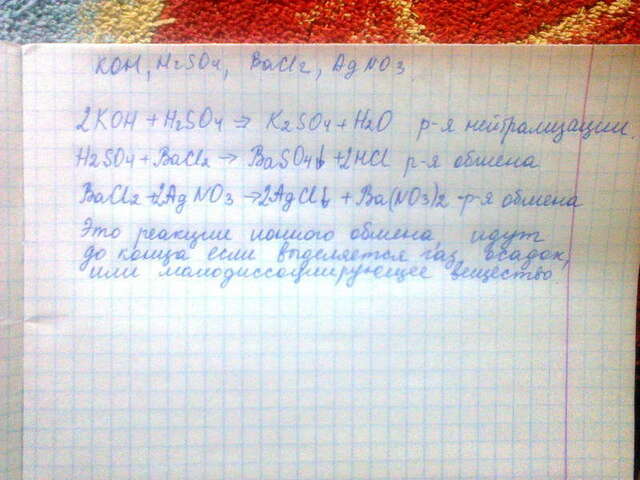 KOH, H2SO4, BaCl2, AgNO3.
2KOH + H2SO4 → K2SO4 + H2O р-я нейтрализации.
H2SO4 + BaCl2 → BaSO4↓ + 2HCl р-я обмена
BaCl2 + 2AgNO3 → 2AgCl↓ + Ba(NO3)2 - р-я обмена
Это реакции ионного обмена, идут
до конца если выделяется газ, осадок,
или малодиссоциирующее вещество.